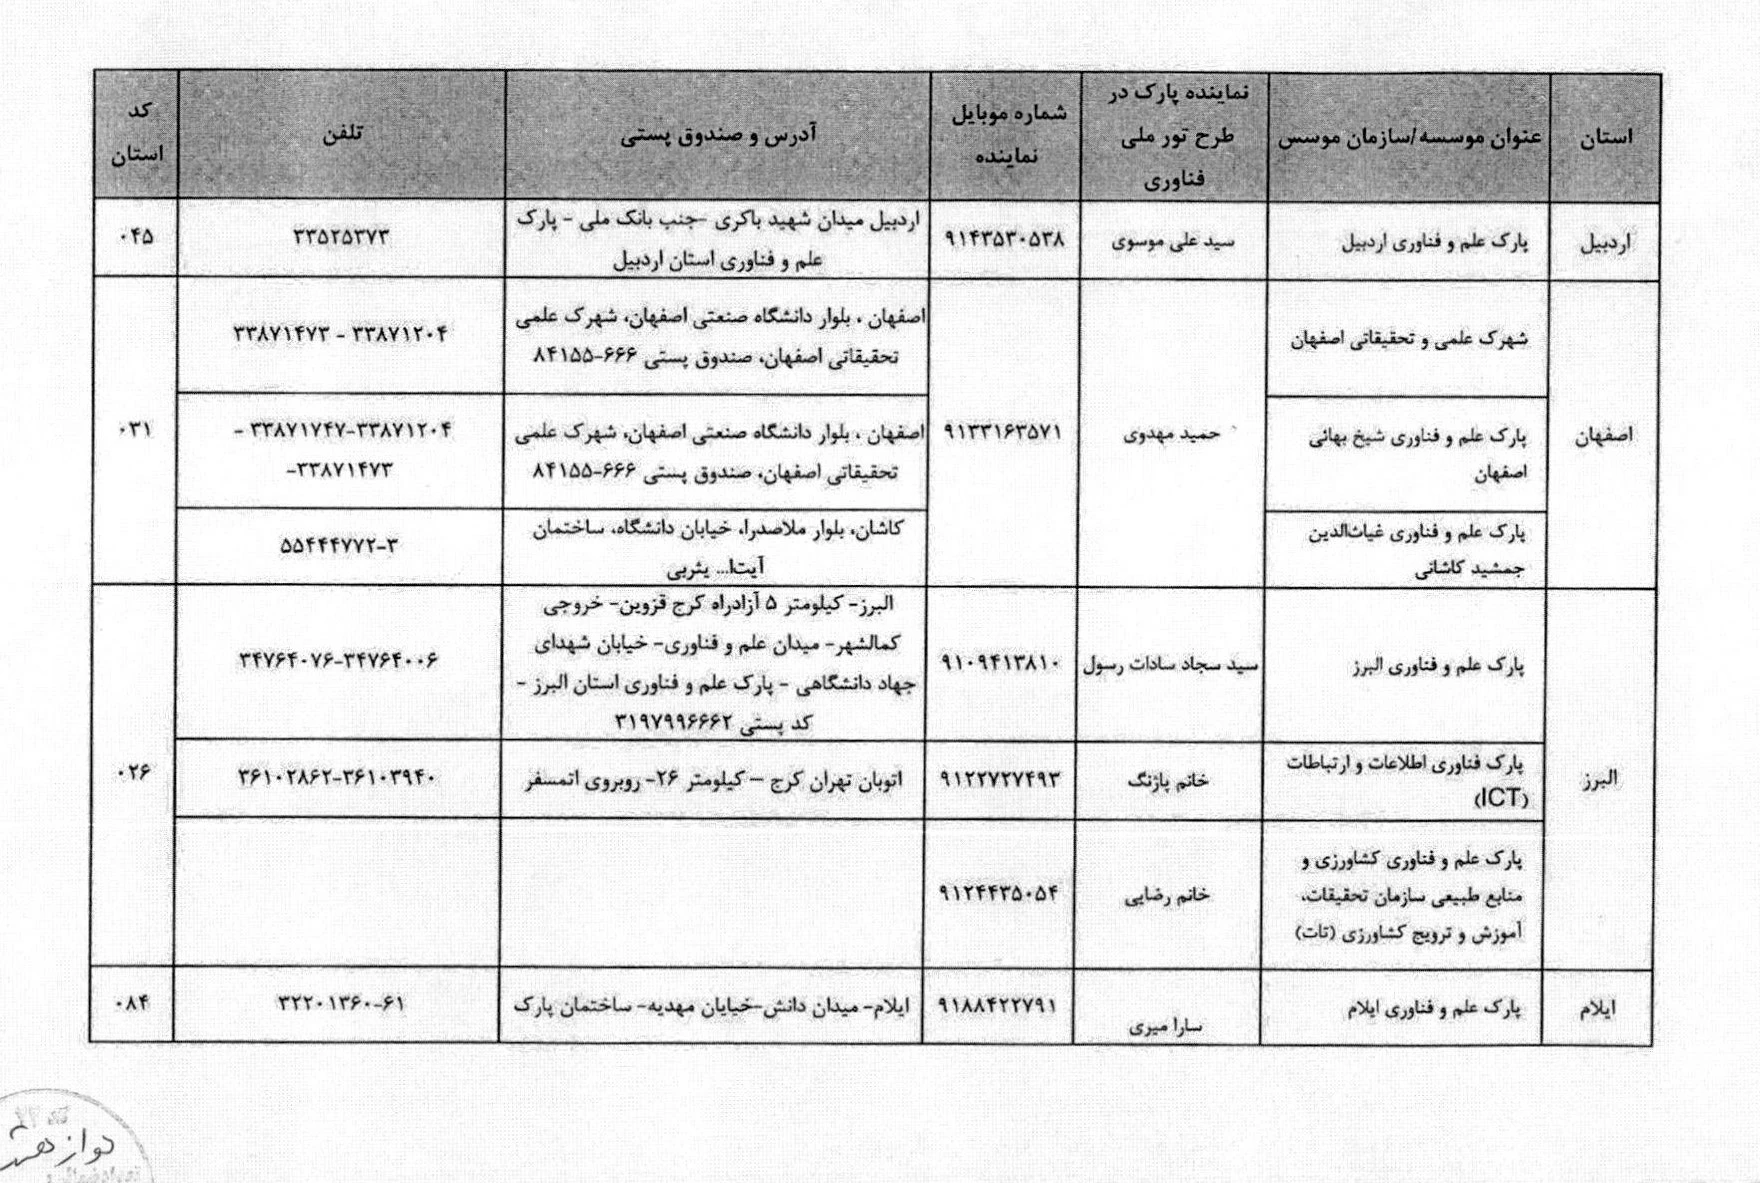 استان
عنوان موسسه/سازمان موسس
نماینده پارک در
طرح تور ملی
فناوری
شماره موبایل
نماینده
آدرس و صندوق پستی
تلفن
کد
استان
اردبیل
پارک علم و فناوری اردبیل
سید علی موسوی
۹۱۴۳۵۳۰۵۳۸
اردبیل میدان شهید باکری -جنب بانک ملی - پارک
علم و فناوری استان اردبیل
۳۳۵۲۵۳۷۳
۰۴۵
اصفهان
شهرک علمی و تحقیقاتی اصفهان
حمید مهدوی
۹۱۳۳۱۶۳۵۷۱
اصفهان ، بلوار دانشگاه صنعتی اصفهان، شهرک علمی
تحقیقاتی اصفهان، صندوق پستی ۶۶۶-۸۴۱۵۵
۳۳۸۷۱۲۰۴ - ۳۳۸۷۱۴۷۳
۰۳۱
پارک علم و فناوری شیخ بهائی
اصفهان
اصفهان ، بلوار دانشگاه صنعتی اصفهان، شهرک علمی
تحقیقاتی اصفهان، صندوق پستی ۶۶۶-۸۴۱۵۵
۳۳۸۷۱۲۰۴-۳۳۸۷۱۷۴۷ -
۳۳۸۷۱۴۷۳-
پارک علم و فناوری غیاث‌الدین
جمشید کاشانی
کاشان، بلوار ملاصدرا، خیابان دانشگاه، ساختمان
آیت‌ا... یثربی
۵۵۴۴۴۷۷۲-۳
البرز
پارک علم و فناوری البرز
سید سجاد سادات رسول
۹۱۰۹۴۱۳۸۱۰
البرز- کیلومتر ۵ آزادراه کرج قزوین- خروجی
کمالشهر- میدان علم و فناوری- خیابان شهدای
جهاد دانشگاهی - پارک علم و فناوری استان البرز -
کد پستی ۳۱۹۷۹۹۶۶۶۲
۳۴۷۶۴۰۰۶-۳۴۷۶۴۰۷۶
۰۲۶
پارک فناوری اطلاعات و ارتباطات
(ICT)
خانم پاژنگ
۹۱۲۲۷۲۷۴۹۳
اتوبان تهران کرج – کیلومتر ۲۶- روبروی اتمسفر
۳۶۱۰۳۹۴۰-۳۶۱۰۲۸۶۲
پارک علم و فناوری کشاورزی و
منابع طبیعی سازمان تحقیقات،
آموزش و ترویج کشاورزی (تات)
خانم رضایی
۹۱۲۴۴۳۵۰۵۴
ایلام
پارک علم و فناوری ایلام
سارا میری
۹۱۸۸۴۲۲۷۹۱
ایلام- میدان دانش-خیایان مهدیه- ساختمان پارک
۳۲۲۰۱۳۶۰-۶۱
۰۸۴